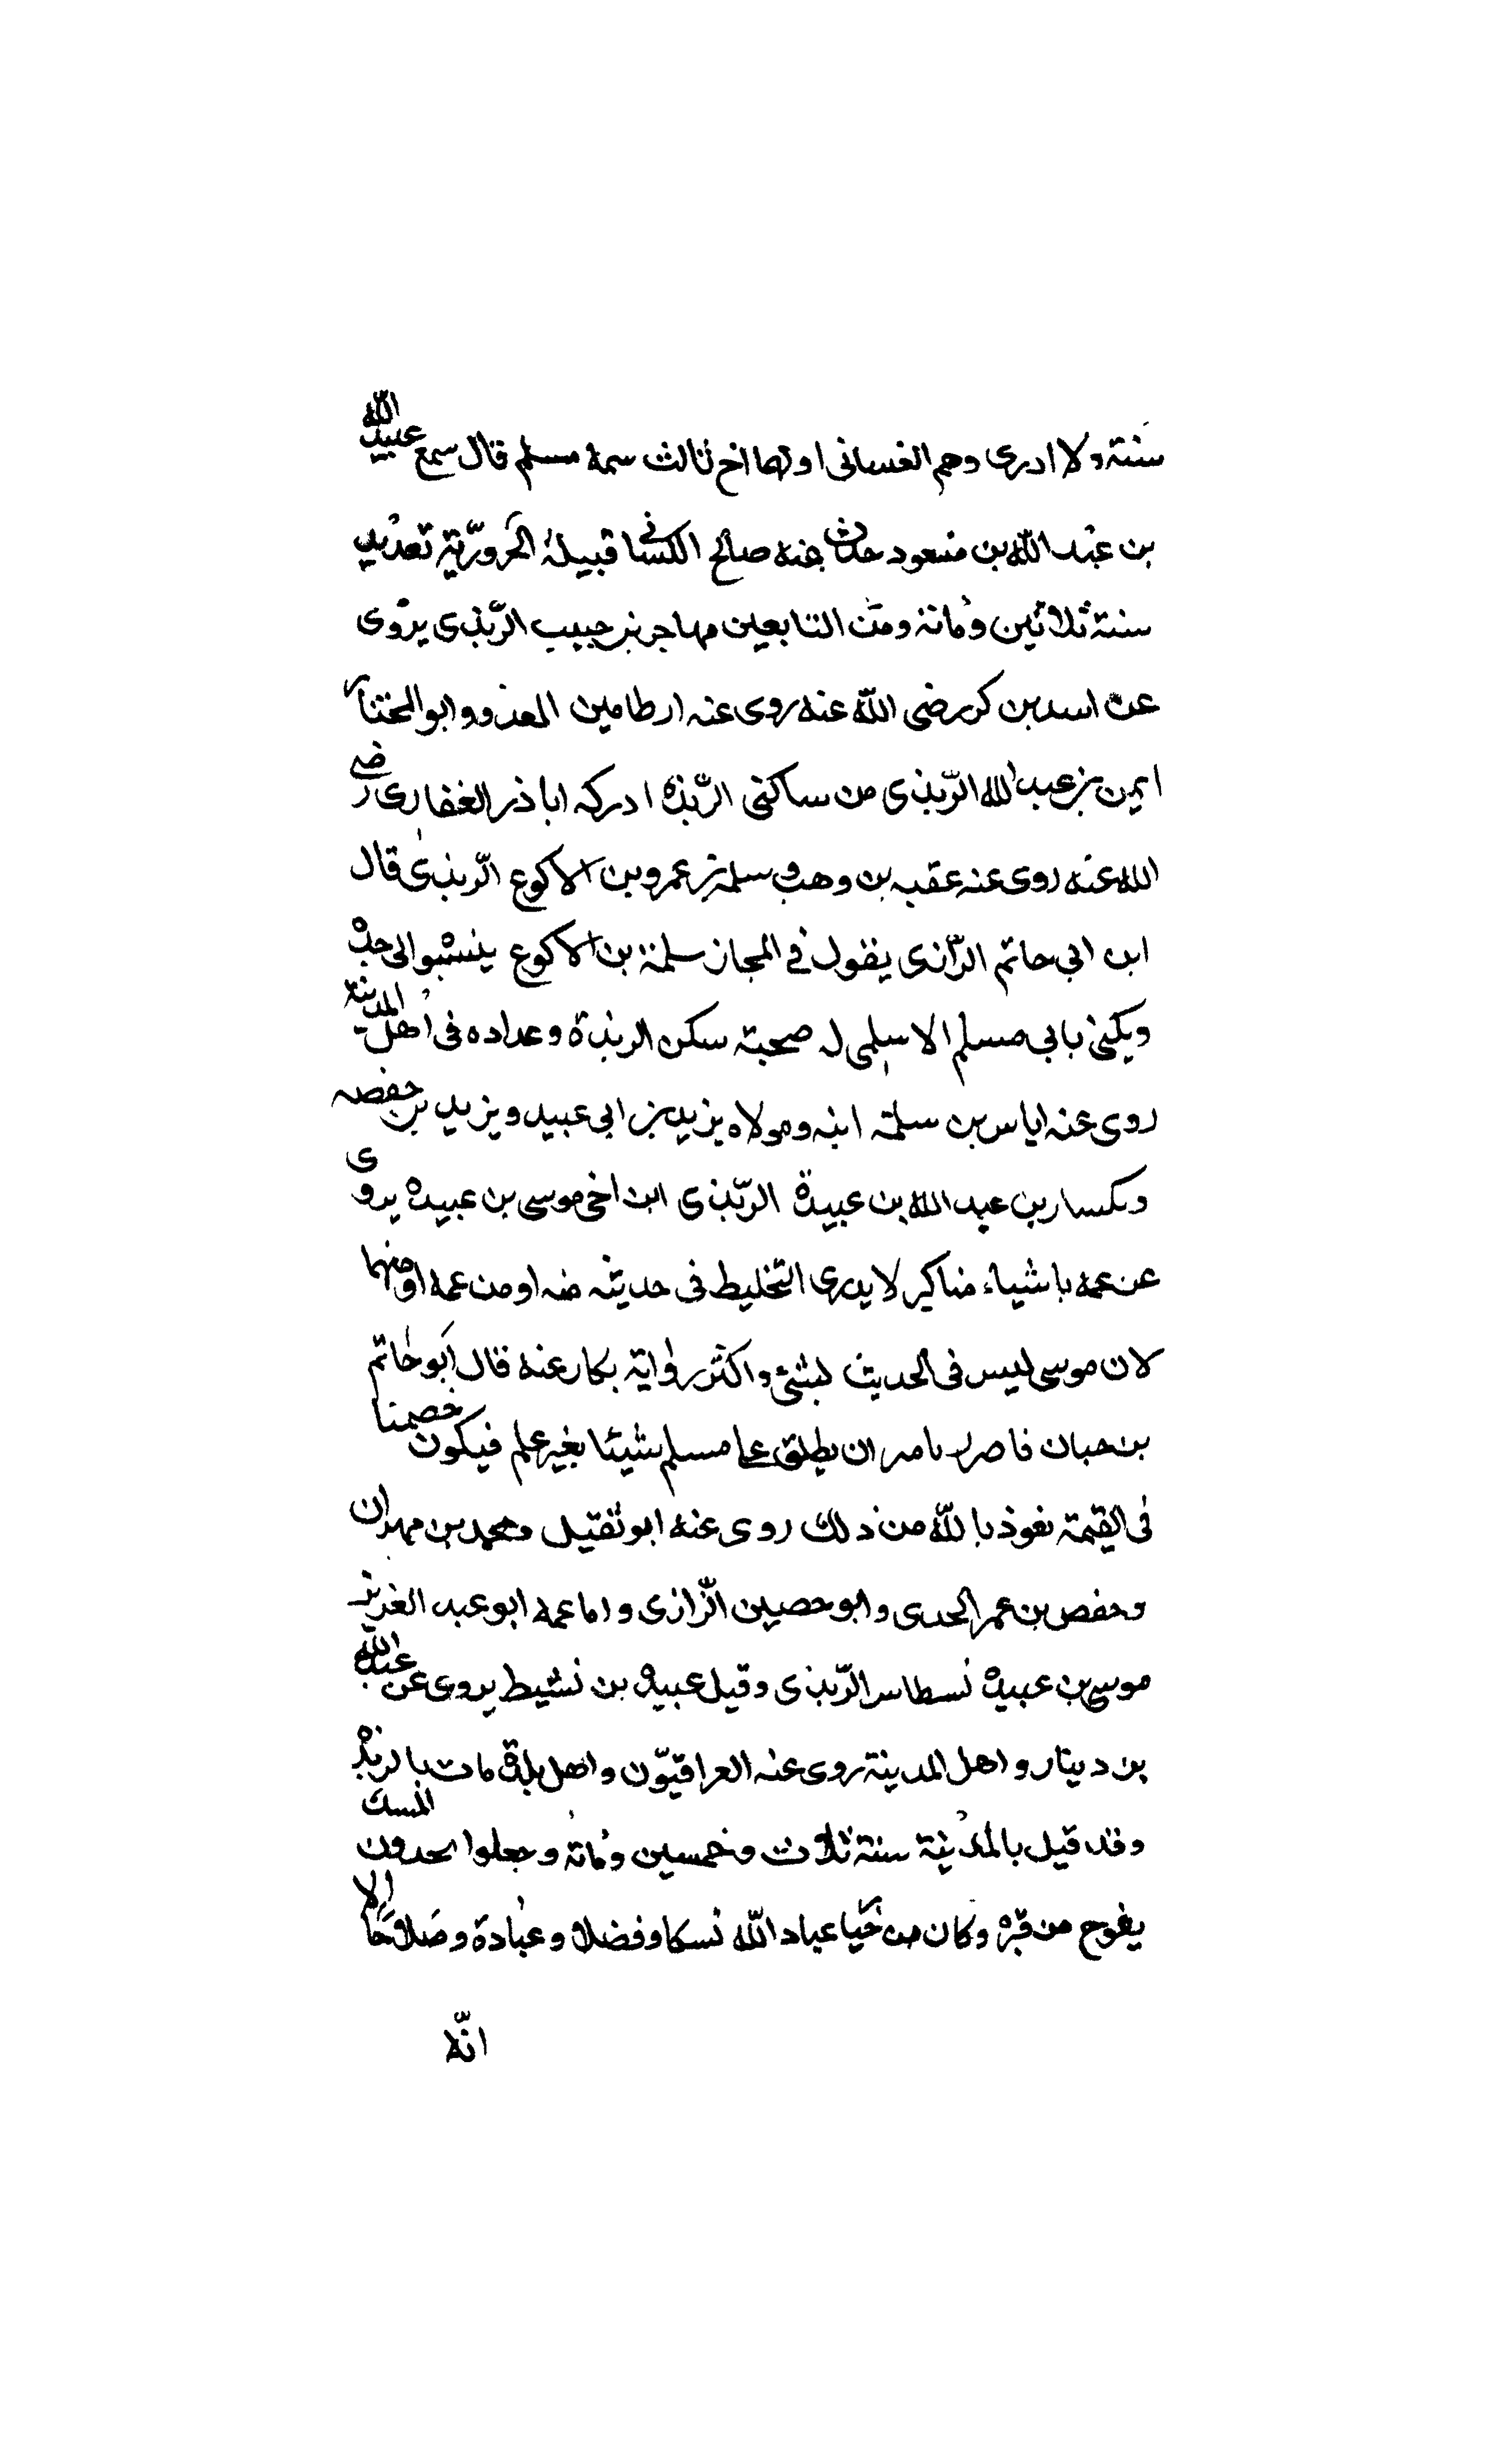 سنة ولا ادرى وهم الغسانى او لهما اخ ثالث سمه مسلم قال سمع عبيد الله
بن عبد الله بن مسعود حدث عنه صالح الكسانى قبيله الحروريّة تعديد
سنة ثلاثين ومائة ومن التابعين مهاجر بن حبيب الرّبذى يروى
عن اسد بن كرز رضى الله عنه روى عنه ارطا من المعذور وابو المختار
ايمن بن عبد الله الرّبذى من ساكنى الرّبذه ادركه اباذر الغفارى رضى
الله عنه روى عنه عقبه بن وهب وسلمة بن عمرو بن الاكوع الرّبذى قال
ابن ابى حاتم الرّازى يقول فى المجاز سلمة بن الاكوع ينسبوا الى جده
ويكنى بابى مسلم الاسلمى له صحبة سكن الربذة وعداده فى اهل المدينة
روى عنه اياس بن سلمة ابنه ومولاه يزيد بن ابى عبيد ويزيد بن حفصه
وبكسار بن عبد الله بن عبيدة الرّبذى ابن اخى موسى بن عبيده يروى
عن عمه باشياء مناكير لا يدرى التخليط فى حديثه منه او من عمه او منهما
لان موسى ليس فى الحديث بشئ واكثر رواية بكار عنه قال ابو حاتم
بن حبان فاصرل نامر ان يطلق على مسلم شيئا بغير علم فيكون خصمنا
فى القيمة نعوذ بالله من ذلك روى عنه ابو نفيل ومحمد بن مهران
وحفص بن عمر الجدى وابو حصين الرّازى واما عمه ابو عبد العزيز
موسى بن عبيده نسطاس الرّبذى وقيل عبيده بن نشيط يروى عن عبد الله
بن دينار واهل المدينة روى عنه العراقيّون واهل بلده مات بالربذه
وقد قيل بالمدينة سنة ثلاث وخمسين ومائة وجعلوا يجدون المسك
يفوح من قبره وكان من خيار عباد الله نسكا وفضلا وعبادة وصلاحا الا
انّه